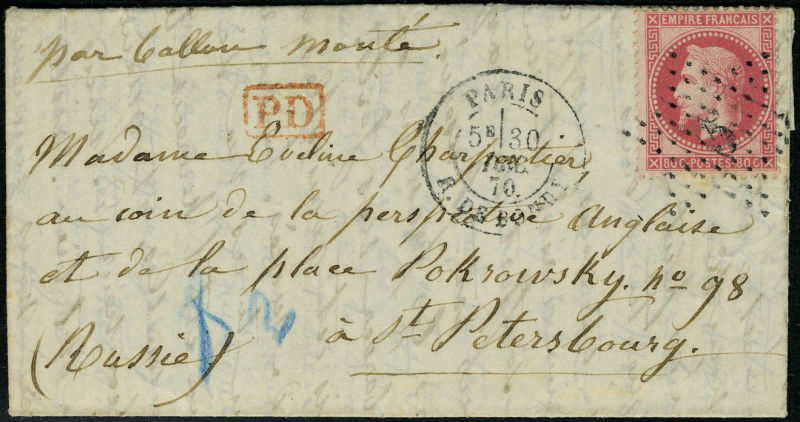 par ballon monté.
EMPIRE FRANÇAIS
80 C POSTES 80 C
PD
PARIS
5E 30
70
R. DE BONDY
Madame Eveline Charpentier,
au coin de la perspective Anglaise
et de la place Pokrowsky, no 98
(Russie) à St. Petersbourg.